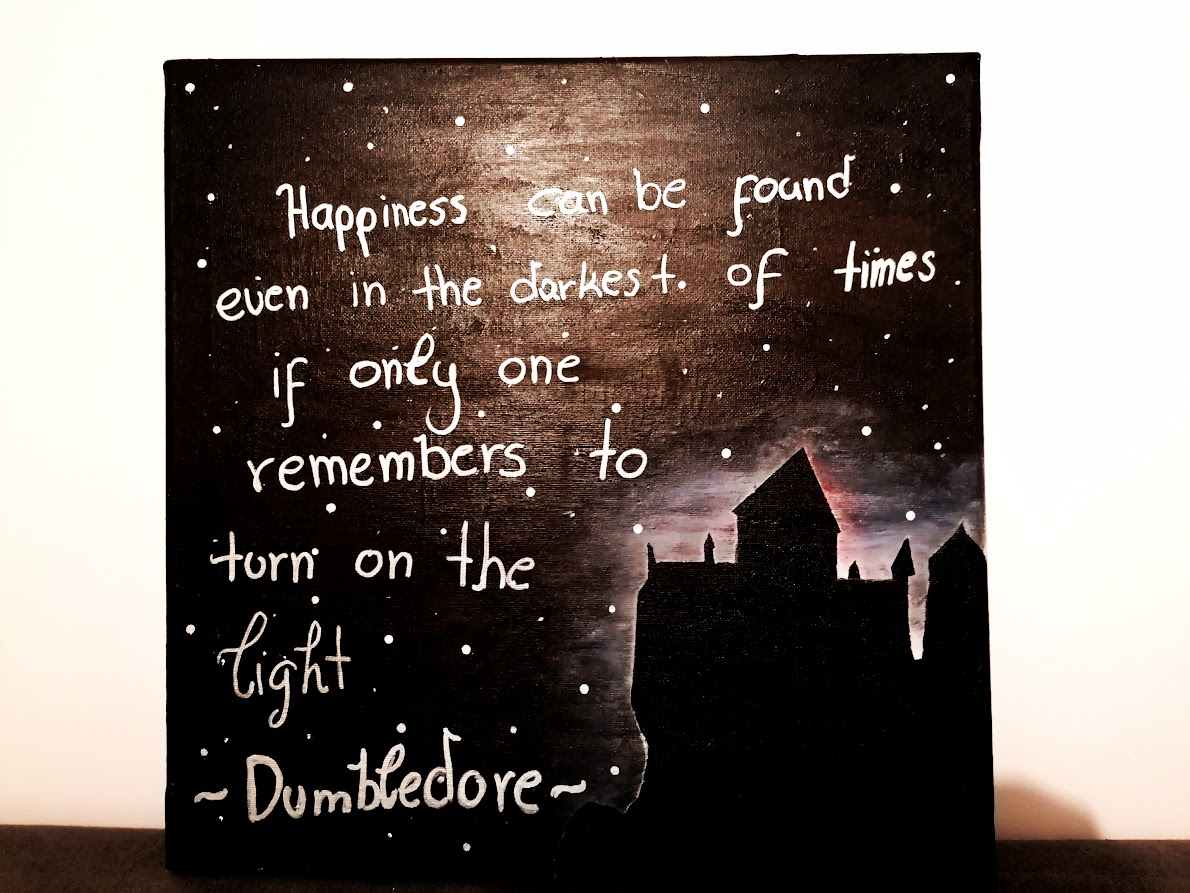 Happiness can be found
even in the darkest. of times.
if only one
remembers to
turn on the
light
~Dumbledore~